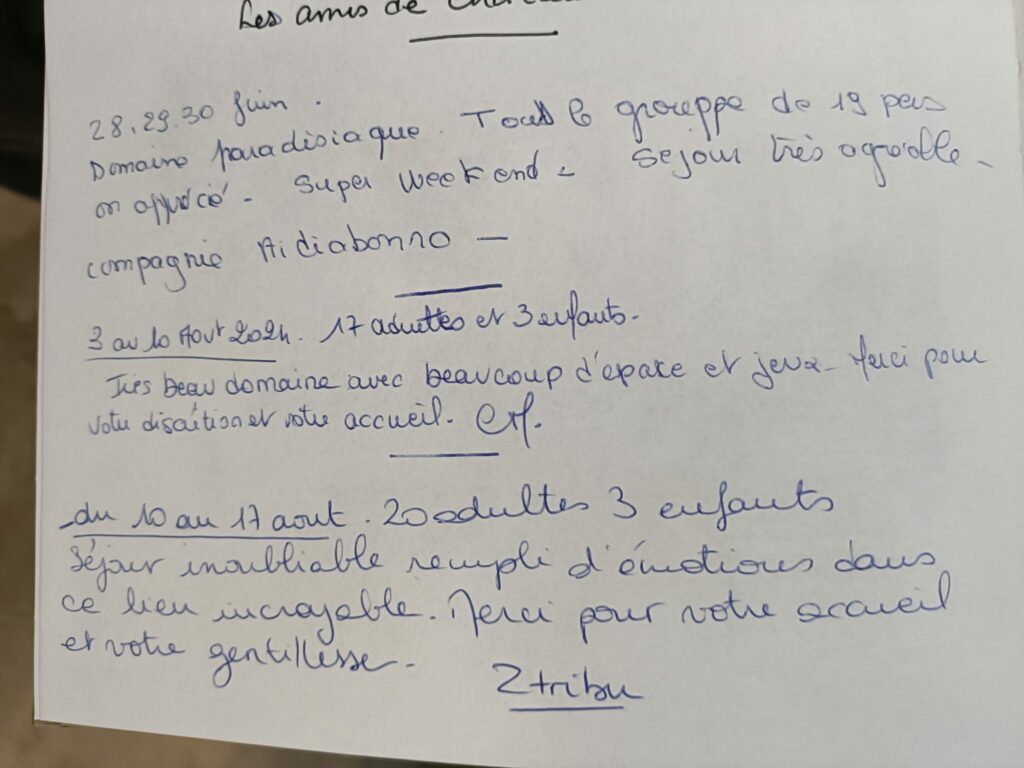 Les amis de
28.29.30 Juin.
Domaine paradisiaque. Tout le grouppe de 19 pers
on apprécié. Super Weekend. Sejour très agréable.
compagnie Aidiabonno —
3 au 10 Aout 2024. 17 adultes et 3 enfants.
Très beau domaine avec beaucoup d'espace et jeux. Merci pour
votre discrétion et votre accueil.
du 10 au 17 aout. 20 adultes 3 enfants
Séjour inoubliable rempli d'émotions dans
ce lieu incroyable. Merci pour votre accueil
et votre gentillesse.
Ztribu